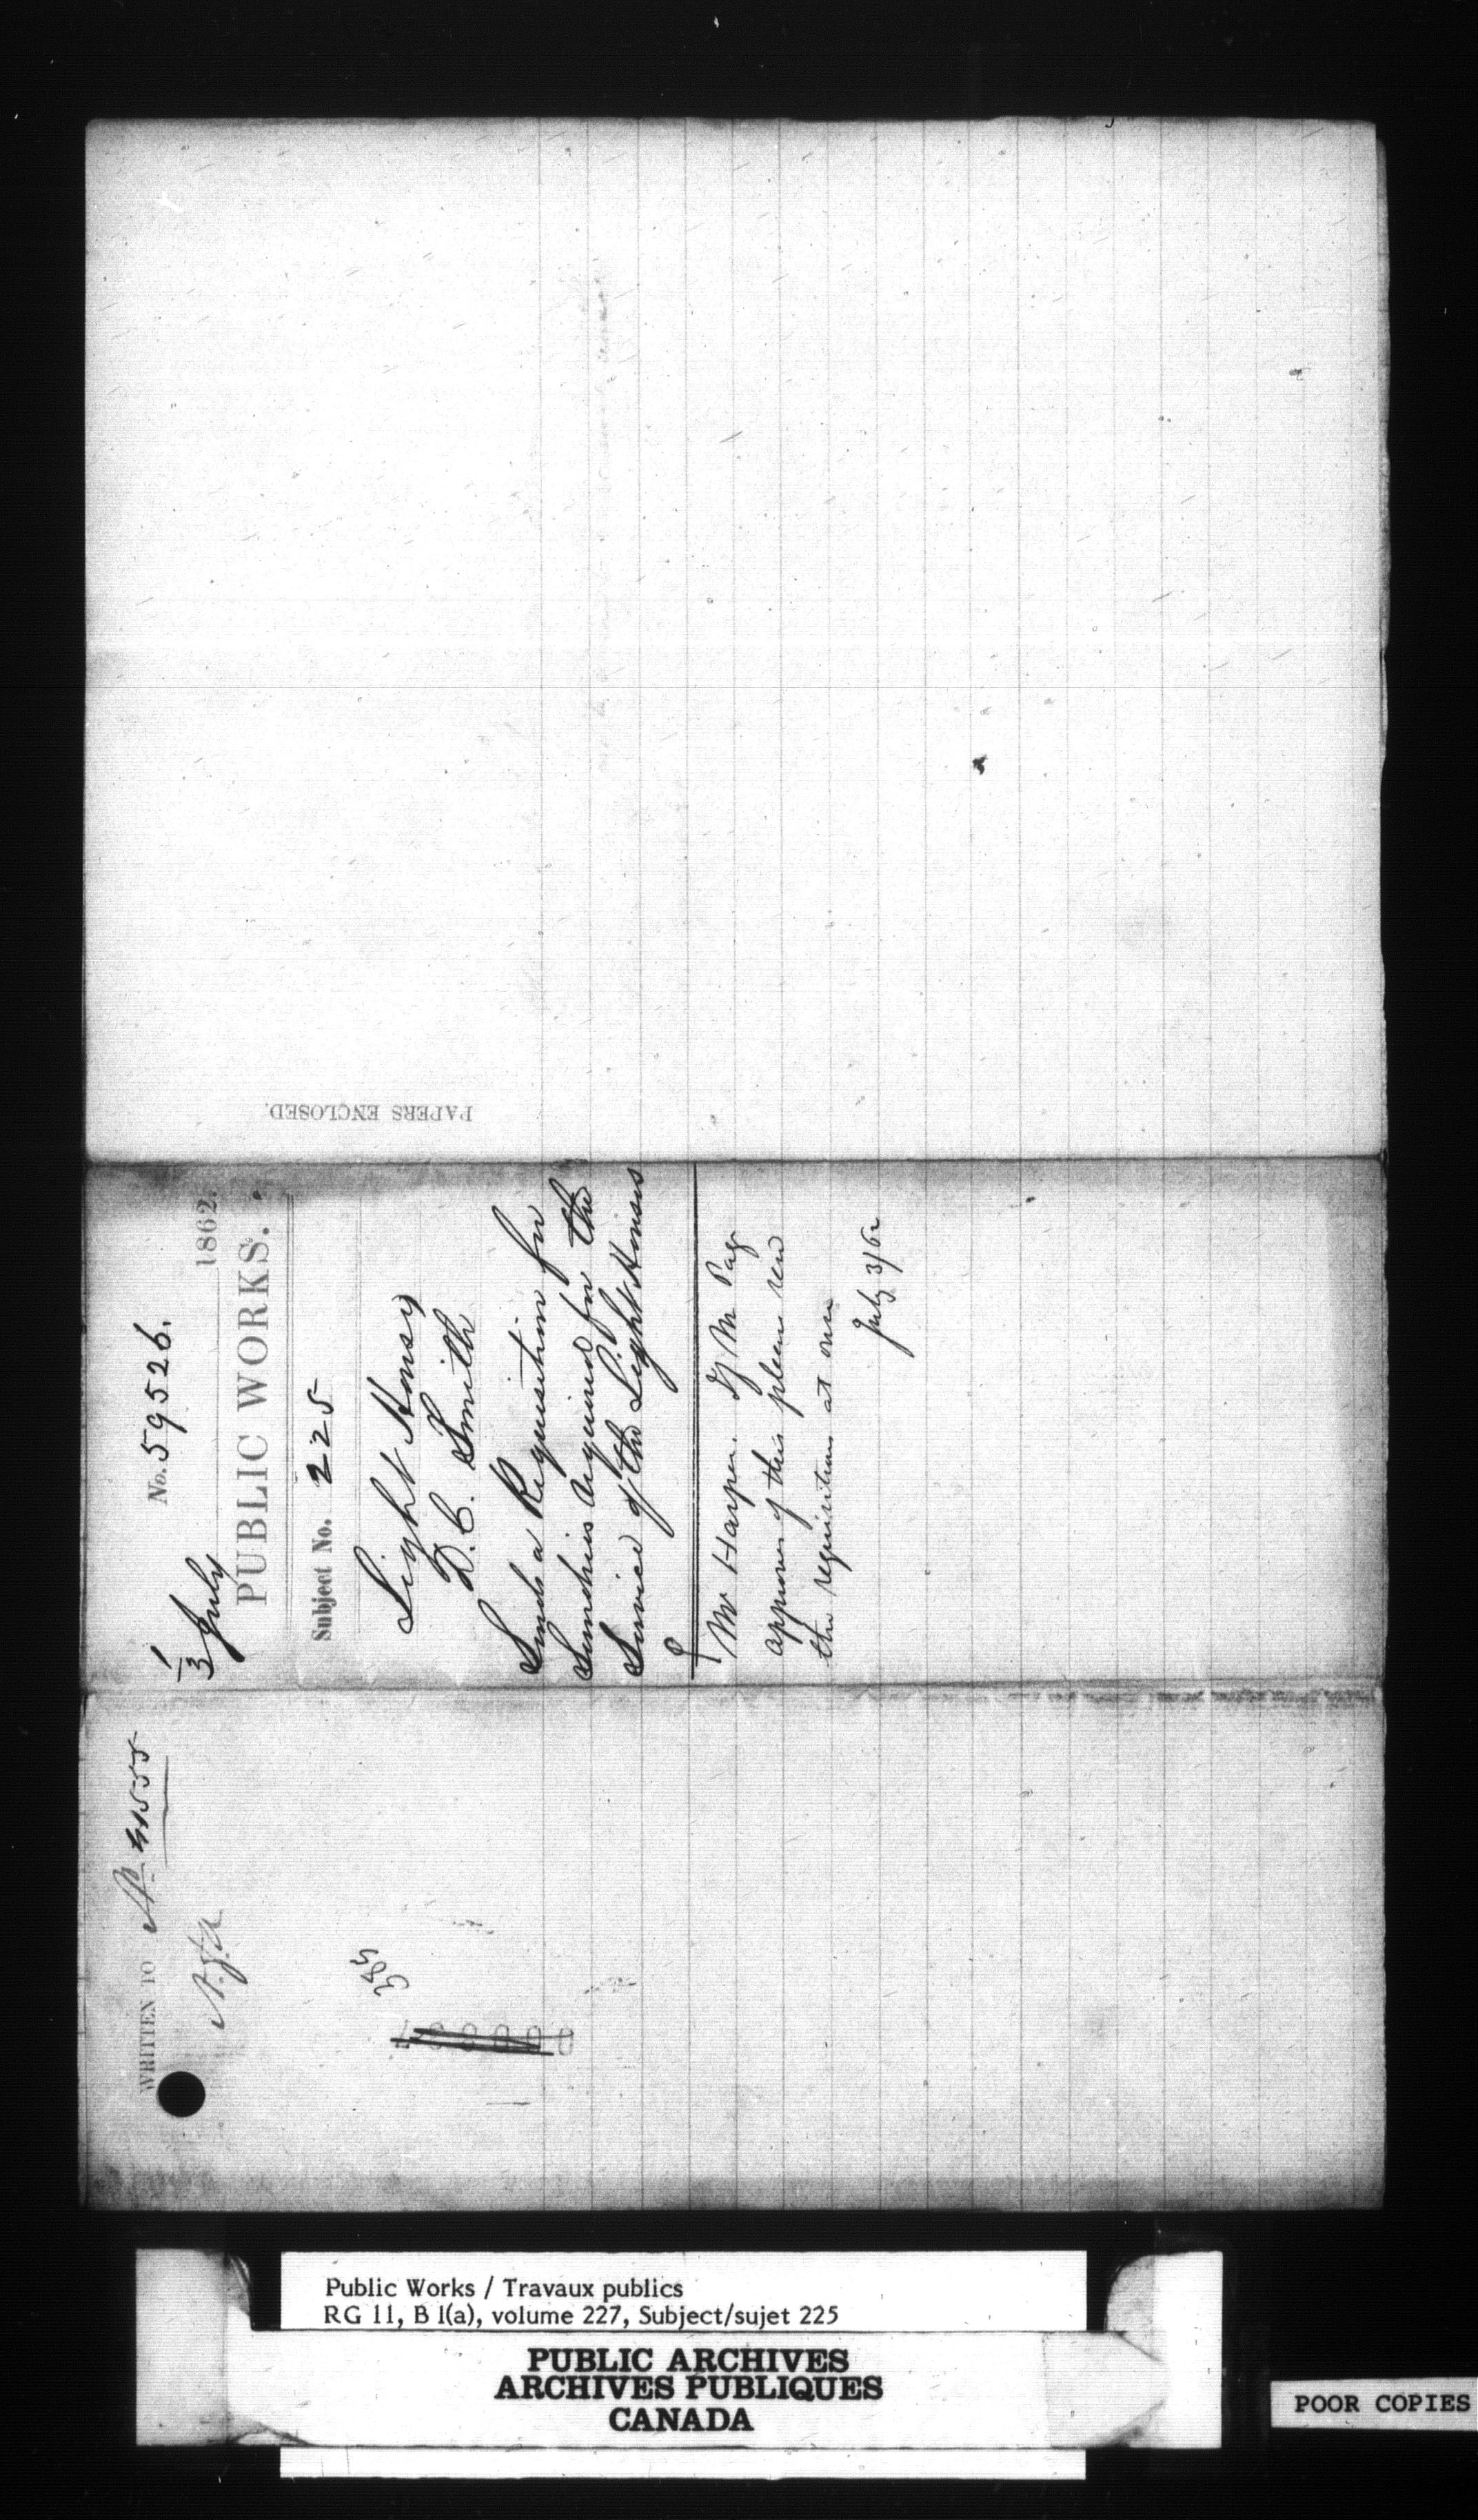 PAPERS ENCLOSED.
No. 59526.
1/3 July 1862.
PUBLIC WORKS.
Subject No. 225
Light Houses
D. C. Smith
Sends a Requisition for
Sundries required for the
Service of the Light Houses
Mr Harper. If Mr Page
approves of this please send
the requisition at once
July 3/62
WRITTEN TO No 41555
345
Public Works / Travaux publics
RG 11, B 1(a), volume 227, Subject/sujet 225
PUBLIC ARCHIVES
ARCHIVES PUBLIQUES
CANADA
POOR COPIES